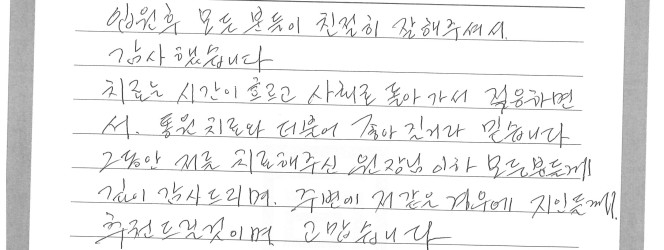 입원후 모든 분들이 친절히 잘해주셔서.
감사했습니다
치료는 시간이 흐르고 사회로 돌아가서 적응하면
서. 통원치료와 더불어 좋아 진거라 믿습니다
그동안 저를 치료해주신 원장님 이하 모든분들께
깊이 감사드리며. 주변에 저 같은 경우에 지인들께.
추천드릴것이며 고맙습니다